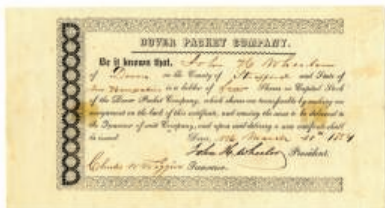 DOVER PACKET COMPANY.
Be it known that, John H Wheeler
of Dover in the County of Strafford and State of
New Hampshire is a holder of Shares in Capital Stock
of the Dover Packet Company, which shares are transferable by making an
assignment on the back of this certificate, and causing the same to be delivered to
the Treasurer of said Company, and upon said delivery a new certificate shall
be issued. Dover, March 18
John H. Wheeler President.
Charles Treasurer.